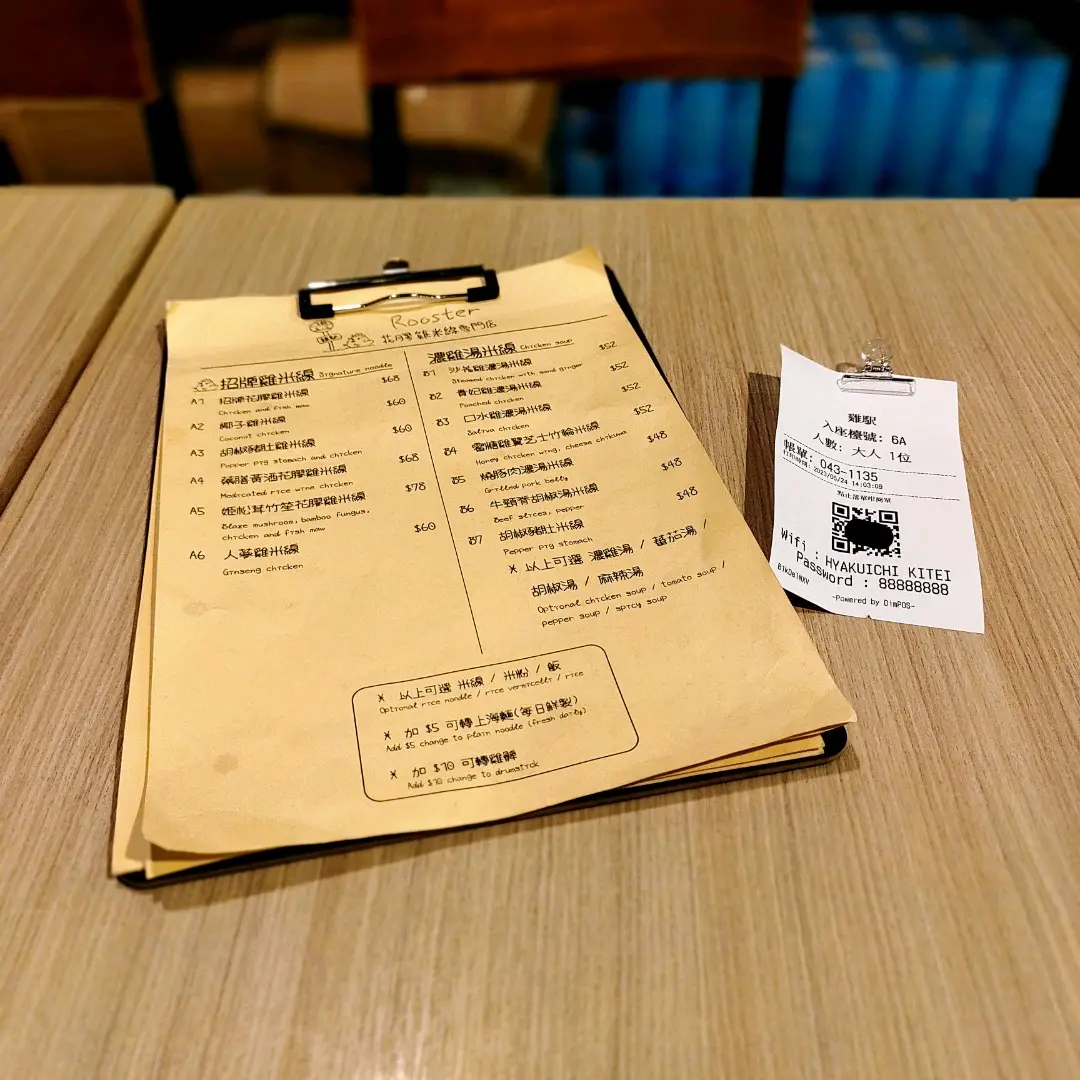 Rooster
花膠雞米線專門店
招牌雞米線 Signature noodle
A1 招牌花膠雞米線 $68
Chicken and fish maw
A2 椰子雞米線 $60
Coconut chicken
A3 胡椒豬肚雞米線 $60
Pepper pig stomach and chicken
A4 藥膳黃酒花膠雞米線 $68
Medicated rice wine chicken
A5 姬松茸竹笙花膠雞米線 $78
Blaze mushroom, bamboo fungus,
chicken and fish maw
A6 人參雞米線 $60
Ginseng chicken
濃雞湯米線 Chicken soup
B1 沙薑雞濃湯米線 $52
Steamed chicken with sand ginger
B2 貴妃雞濃湯米線 $52
Poached chicken
B3 口水雞濃湯米線 $52
Saliva chicken
B4 蜜糖雞翼芝士竹輪米線 $52
Honey chicken wing, cheese chikuwa
B5 燒豚肉濃湯米線 $48
Grilled pork belly
B6 牛頸脊胡椒湯米線 $48
Beef slices, pepper
B7 胡椒豬肚米線 $48
Pepper pig stomach
※ 以上可選 濃雞湯 / 蕃茄湯 /
胡椒湯 / 麻辣湯
Optional chicken soup / tomato soup /
pepper soup / spicy soup
※ 以上可選 米線 / 米粉 / 飯
Optional rice noodle / rice vermicelli / rice
※ 加 $5 可轉上海麵(每日鮮製)
Add $5 change to plain noodle (fresh daily)
※ 加 $10 可轉雞髀
Add $10 change to drumstick
雞駅
入座檯號: 6A
人數: 大人 1位
帳單: 043-1135
打印時間: 2023/05/24 14:03:09
點止落單咁簡單
Wifi : HYAKUICHI KITEI
Password : 88888888
-Powered by DimPOS-